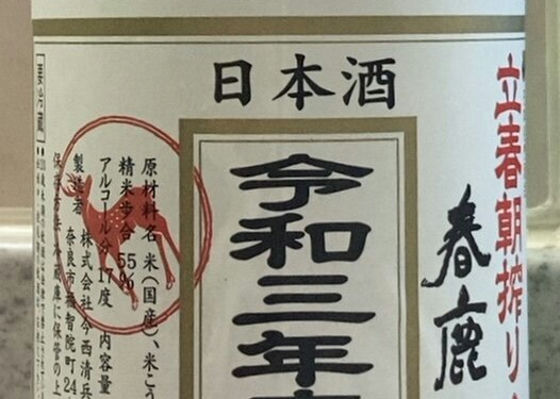 日本酒
立春朝搾り
春鹿
令和三年
原材料名 米(国産)、米こう
精米歩合 55%
アルコール分 17度 内容量
製造者 株式会社今西清兵
奈良市福智院町24
要冷蔵